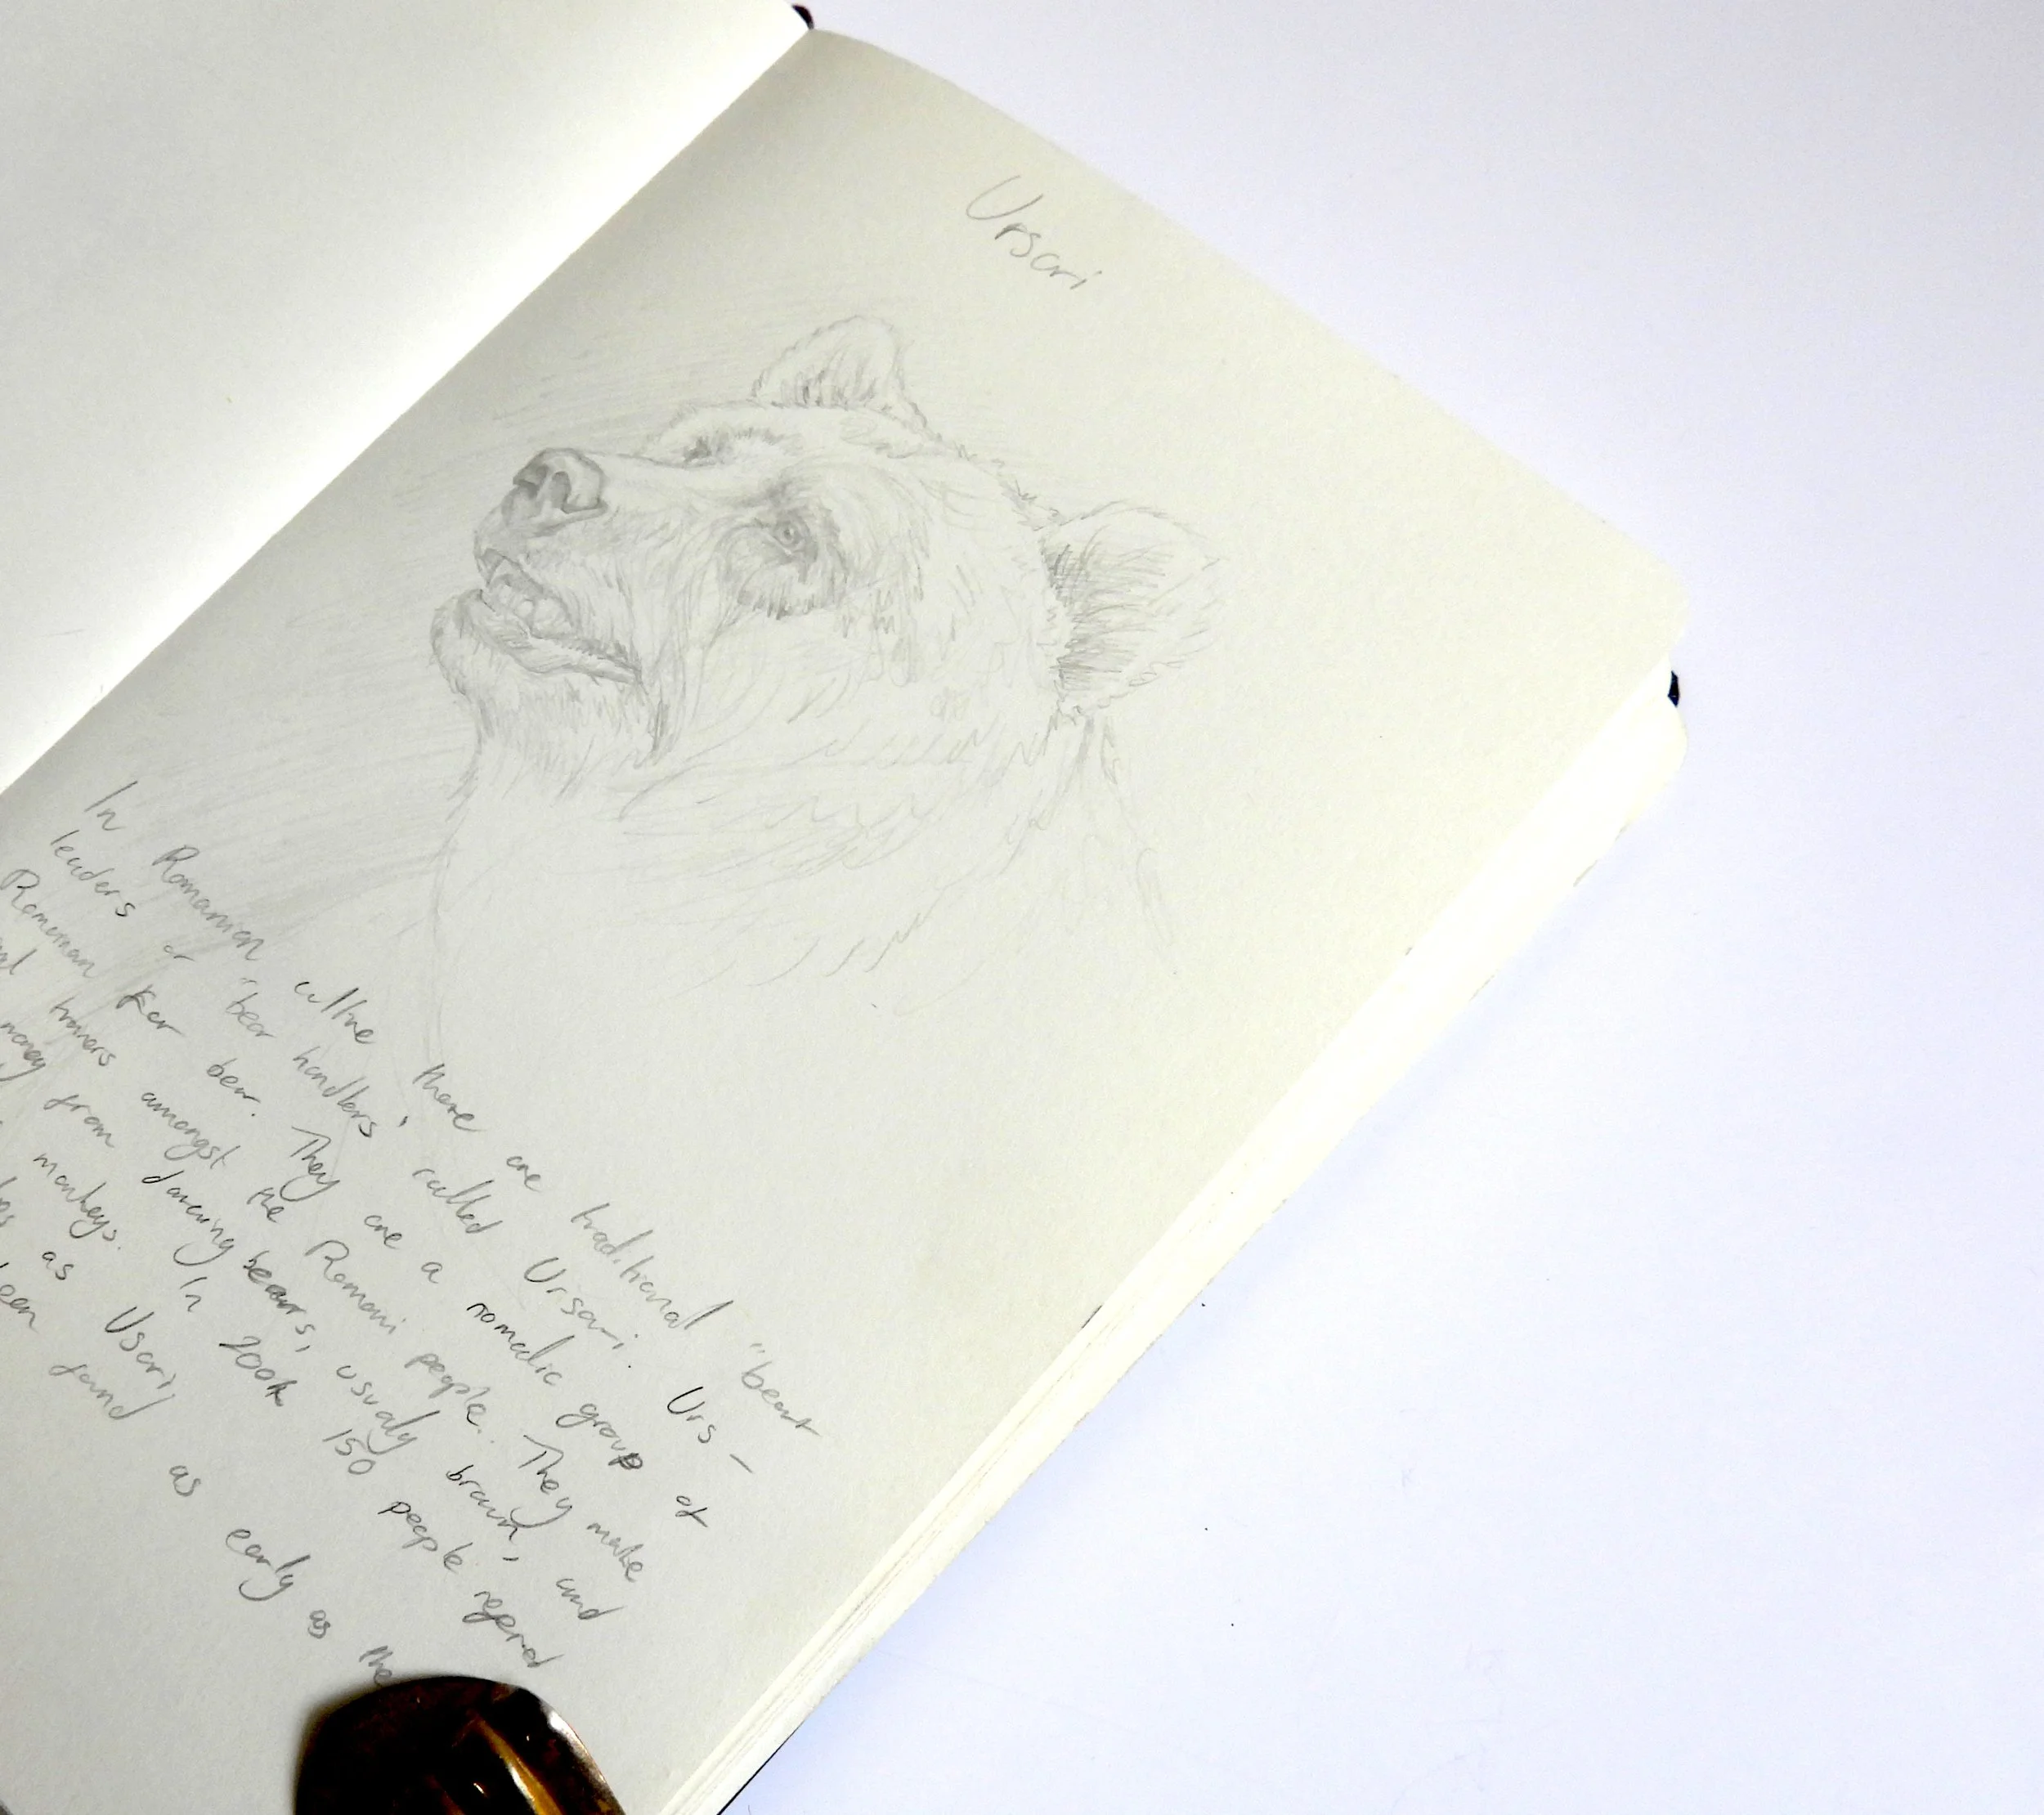 Ursari
In Romanian culture there are traditional "bear
leaders or "bear handlers", called Ursari. Urs -
Romanian for bear. They are a nomadic group of
trainers amongst the Romani people. They make
money from dancing bears, usualy brown, and
monkeys. In 150 people
as Usari,
found as early as the